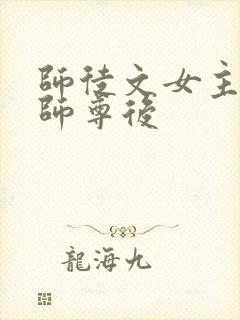 師徒文女主
師尊後
龍海九